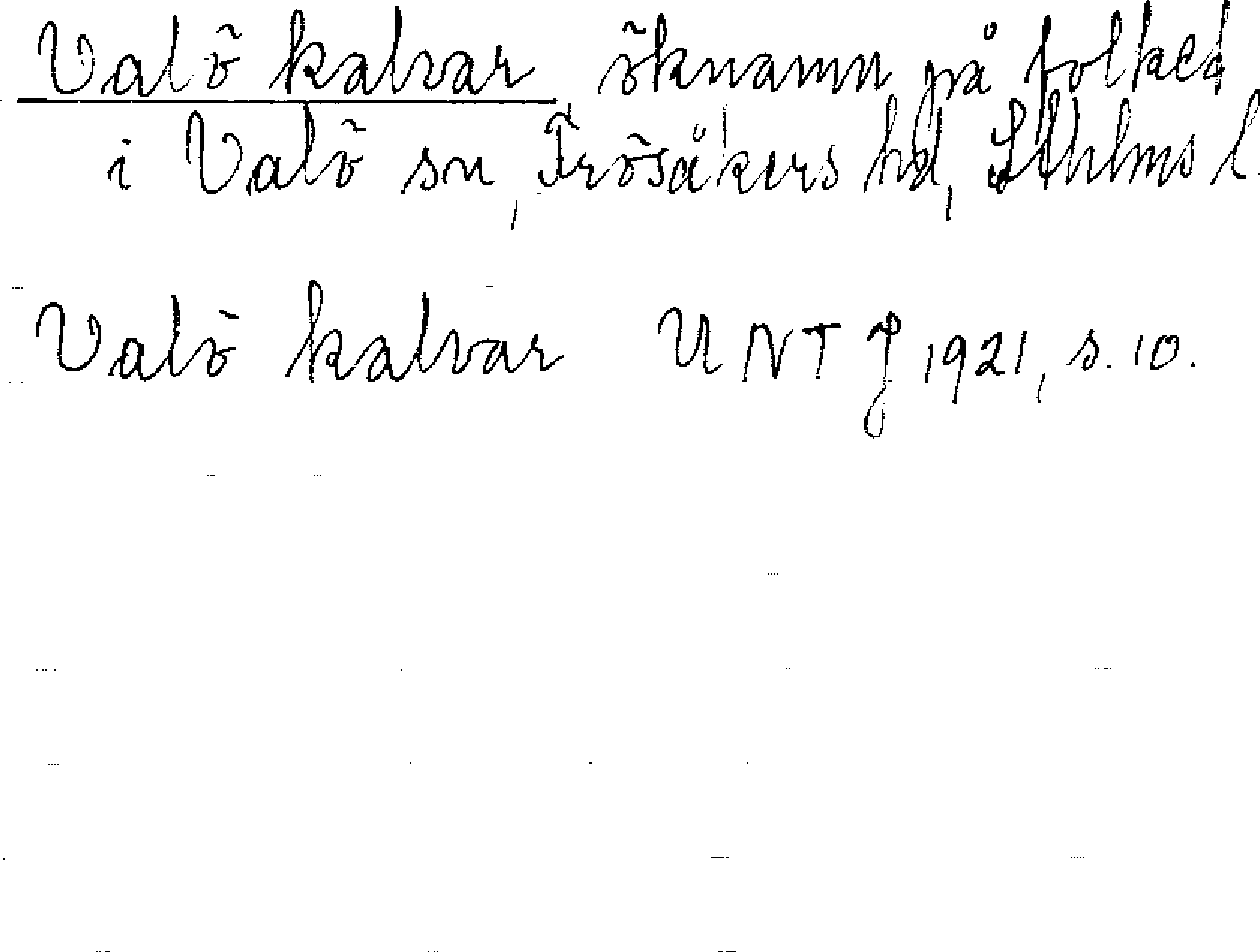 Valö kalvar öknamn på folket
i Valö sn, Frösåkers hd, Sthlms l.
Valö kalvar UNT J 1921, s. 10.